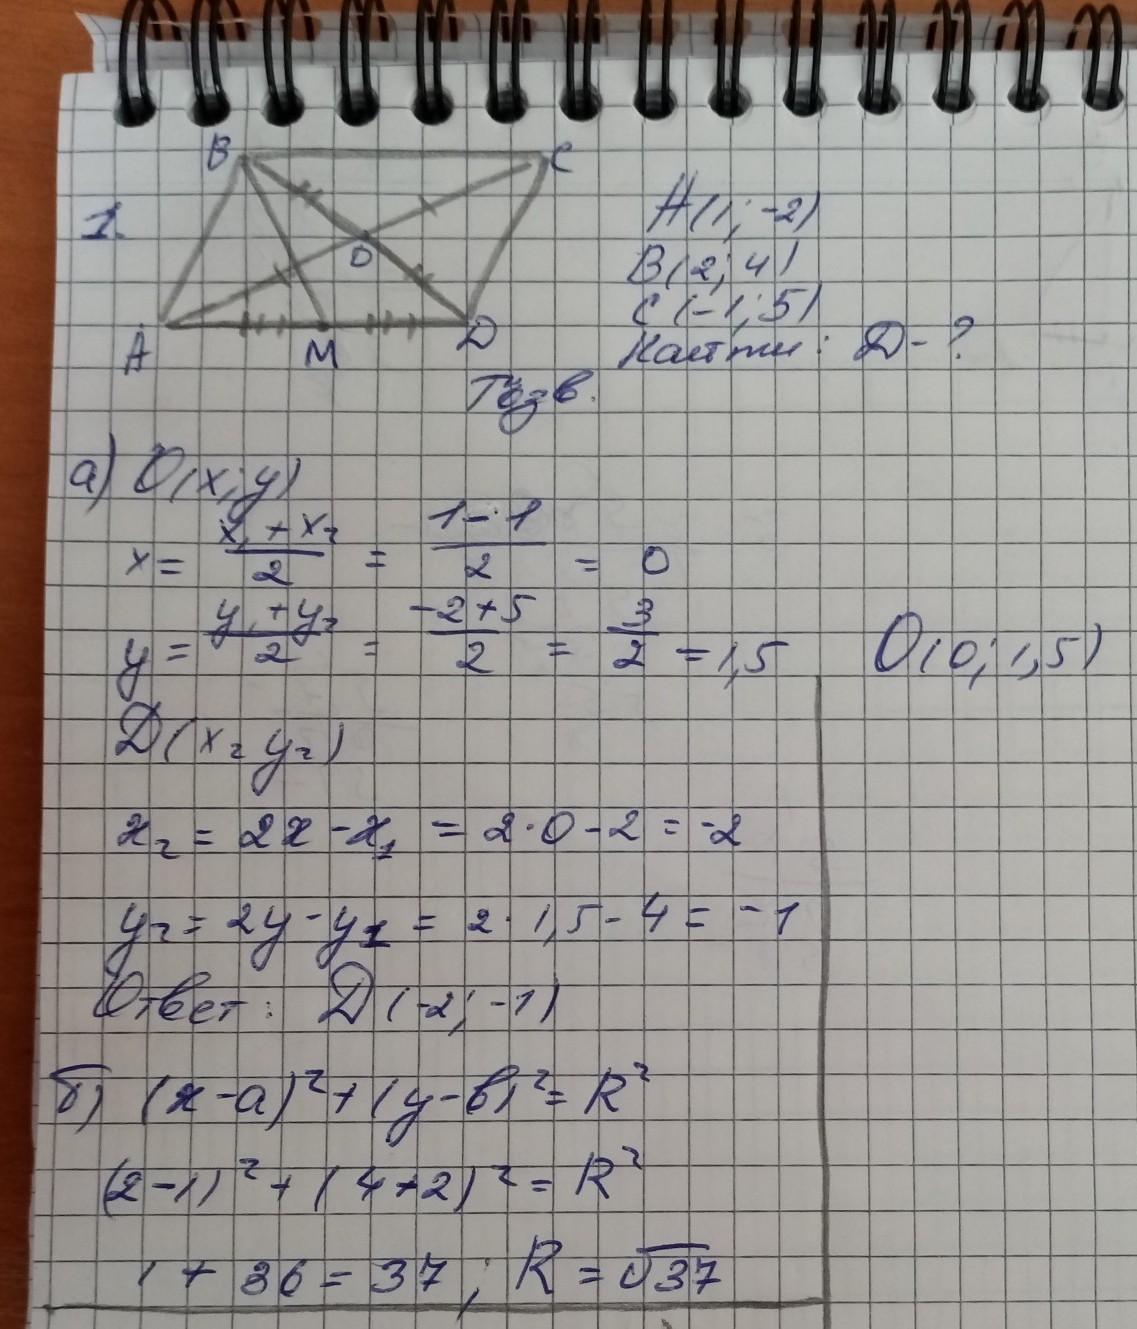 1.
B C
O
A M D
A(1; -2)
B(2; 4)
C(-1; 5)
D - ?
а) O(x; y)
x = (x₁ + x₂)/2 = (1 - 1)/2 = 0
y = (y₁ + y₂)/2 = (-2 + 5)/2 = 3/2 = 1,5 O(0; 1,5)
D(x₂ y₂)
x₂ = 2x - x₁ = 2·0 - 2 = -2
y₂ = 2y - y₁ = 2·1,5 - 4 = -1
Ответ: D(-2; -1)
б) (x - a)² + (y - b)² = R²
(2 - 1)² + (4 + 2)² = R²
1 + 36 = 37; R = √37